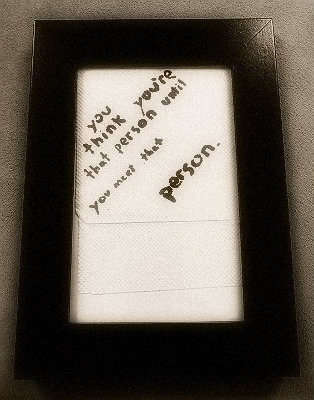 you
think you're
that person until
you meet that
person.